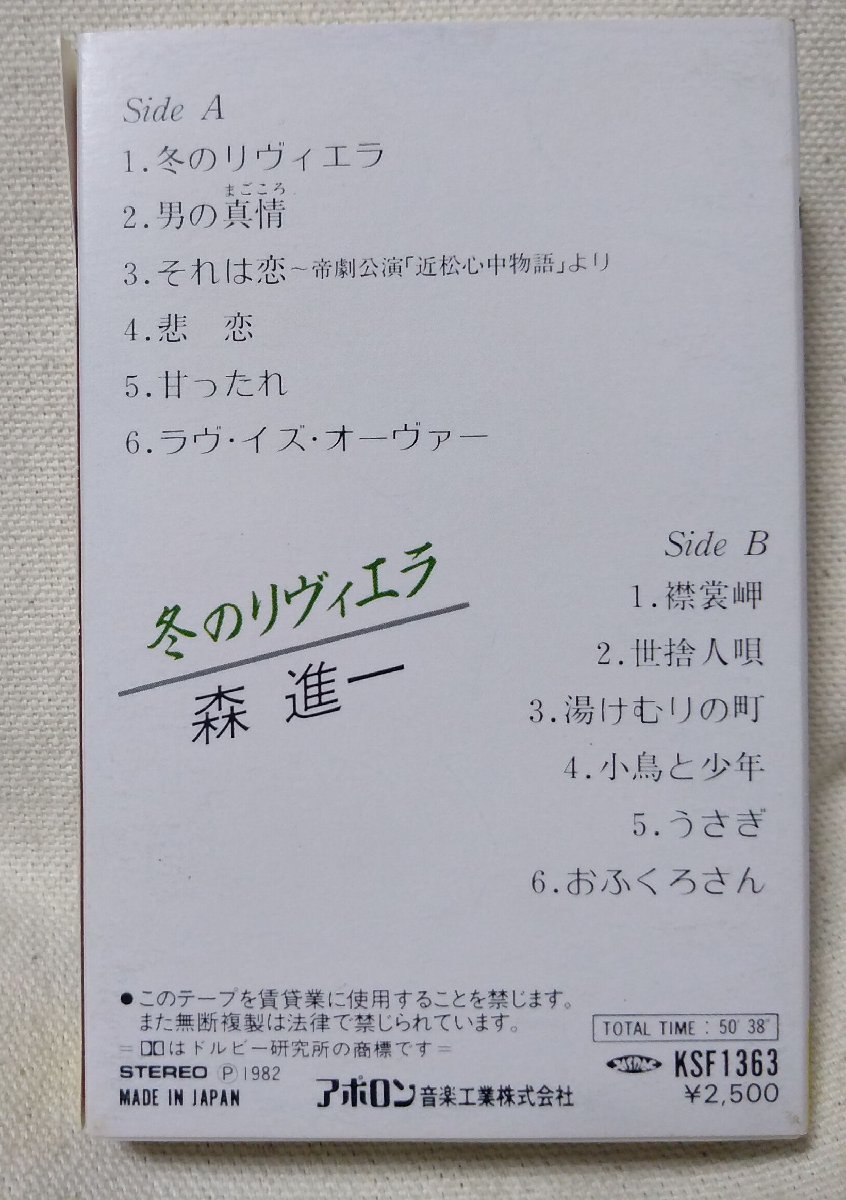 Side A
1.冬のリヴィエラ
まごころ
2.男の真情
3.それは恋~帝劇公演「近松心中物語」より
4.悲 恋
5.甘ったれ
6.ラヴ・イズ・オーヴァー
冬のリヴィエラ
森 進一
Side B
1.襟裳岬
2.世捨人唄
3.湯けむりの町
4.小鳥と少年
5.うさぎ
6.おふくろさん
●このテープを賃貸業に使用することを禁じます。
また無断複製は法律で禁じられています。
=はドルビー研究所の商標です=
STEREO Ⓟ1982
MADE IN JAPAN
アポロン音楽工業株式会社
TOTAL TIME : 50′ 38″
KSF1363
¥2,500